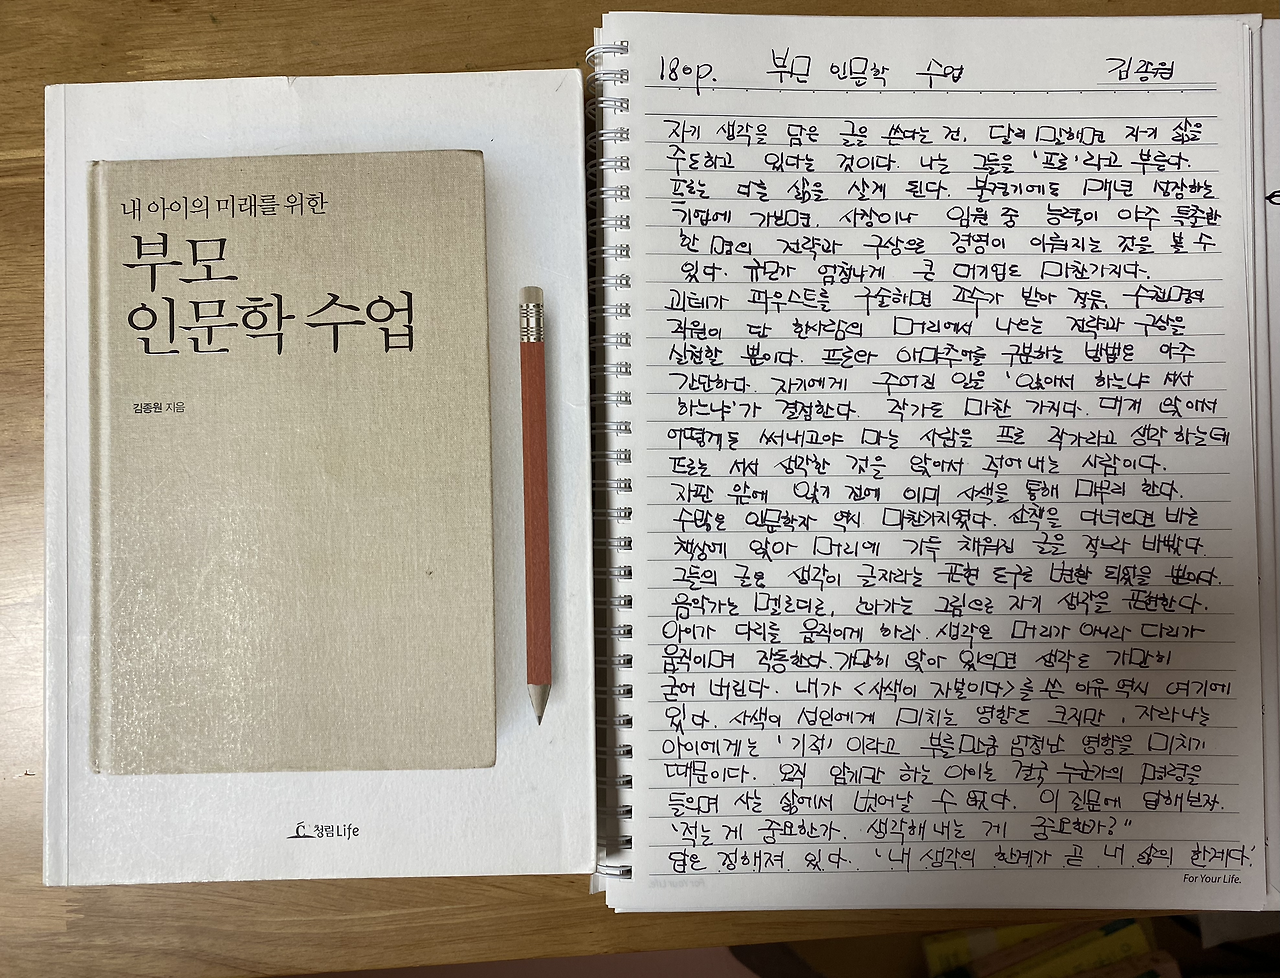 내 아이의 미래를 위한
부모
인문학 수업
김종원 지음
청림Life
180p. 부모 인문학 수업 김종원
자기 생각을 담은 글을 쓴다는 건, 달리 말하면 자기 삶을
주도하고 있다는 것이다. 나는 그들을 '프로'라고 부른다.
프로는 다른 삶을 살게 된다. 불경기에도 매년 성장하는
기업에 가보면, 사장이나 임원 중 능력이 아주 특출한
한 명의 전략과 구상으로 경영이 이뤄지는 것을 볼 수
있다. 규모가 엄청나게 큰 대기업도 마찬가지다.
괴테가 파우스트를 구술하면 조수가 받아 적듯, 수천명의
직원이 단 한사람의 머리에서 나오는 전략과 구상을
실천할 뿐이다. 프로와 아마추어를 구분하는 방법은 아주
간단하다. 자기에게 주어진 일을 '앉아서 하느냐 서서
하느냐'가 결정한다. 작가도 마찬 가지다. 대개 앉아서
어떻게든 써내고야 마는 사람을 프로 작가라고 생각 하는데
프로는 서서 생각한 것을 앉아서 적어 내는 사람이다.
자판 앞에 앉기 전에 이미 사색을 통해 마무리 한다.
수많은 인문학자 역시 마찬가지였다. 산책을 다녀오면 바로
책상에 앉아 머리에 가득 채워진 글을 적느라 바빴다.
그들의 글은 생각이 글자라는 표현 도구로 변환 되었을 뿐이다.
음악가는 멜로디로, 화가는 그림으로 자기 생각을 표현한다.
아이가 다리를 움직이게 하라. 생각은 머리가 아니라 다리가
움직이며 작동한다. 가만히 앉아 있으면 생각도 가만히
굳어 버린다. 내가 <사색이 자본이다>를 쓴 이유 역시 여기에
있다. 사색이 성인에게 미치는 영향도 크지만, 자라나는
아이에게는 '기적' 이라고 부를만큼 엄청난 영향을 미치기
때문이다. 오직 암기만 하는 아이는 결국 누군가의 명령을
들으며 사는 삶에서 벗어날 수 없다. 이 질문에 답해보자.
"적는 게 중요한가. 생각해 내는 게 중요한가?"
답은 정해져 있다. '내 생각의 한계가 곧 내 삶의 한계다.'
For Your Life.